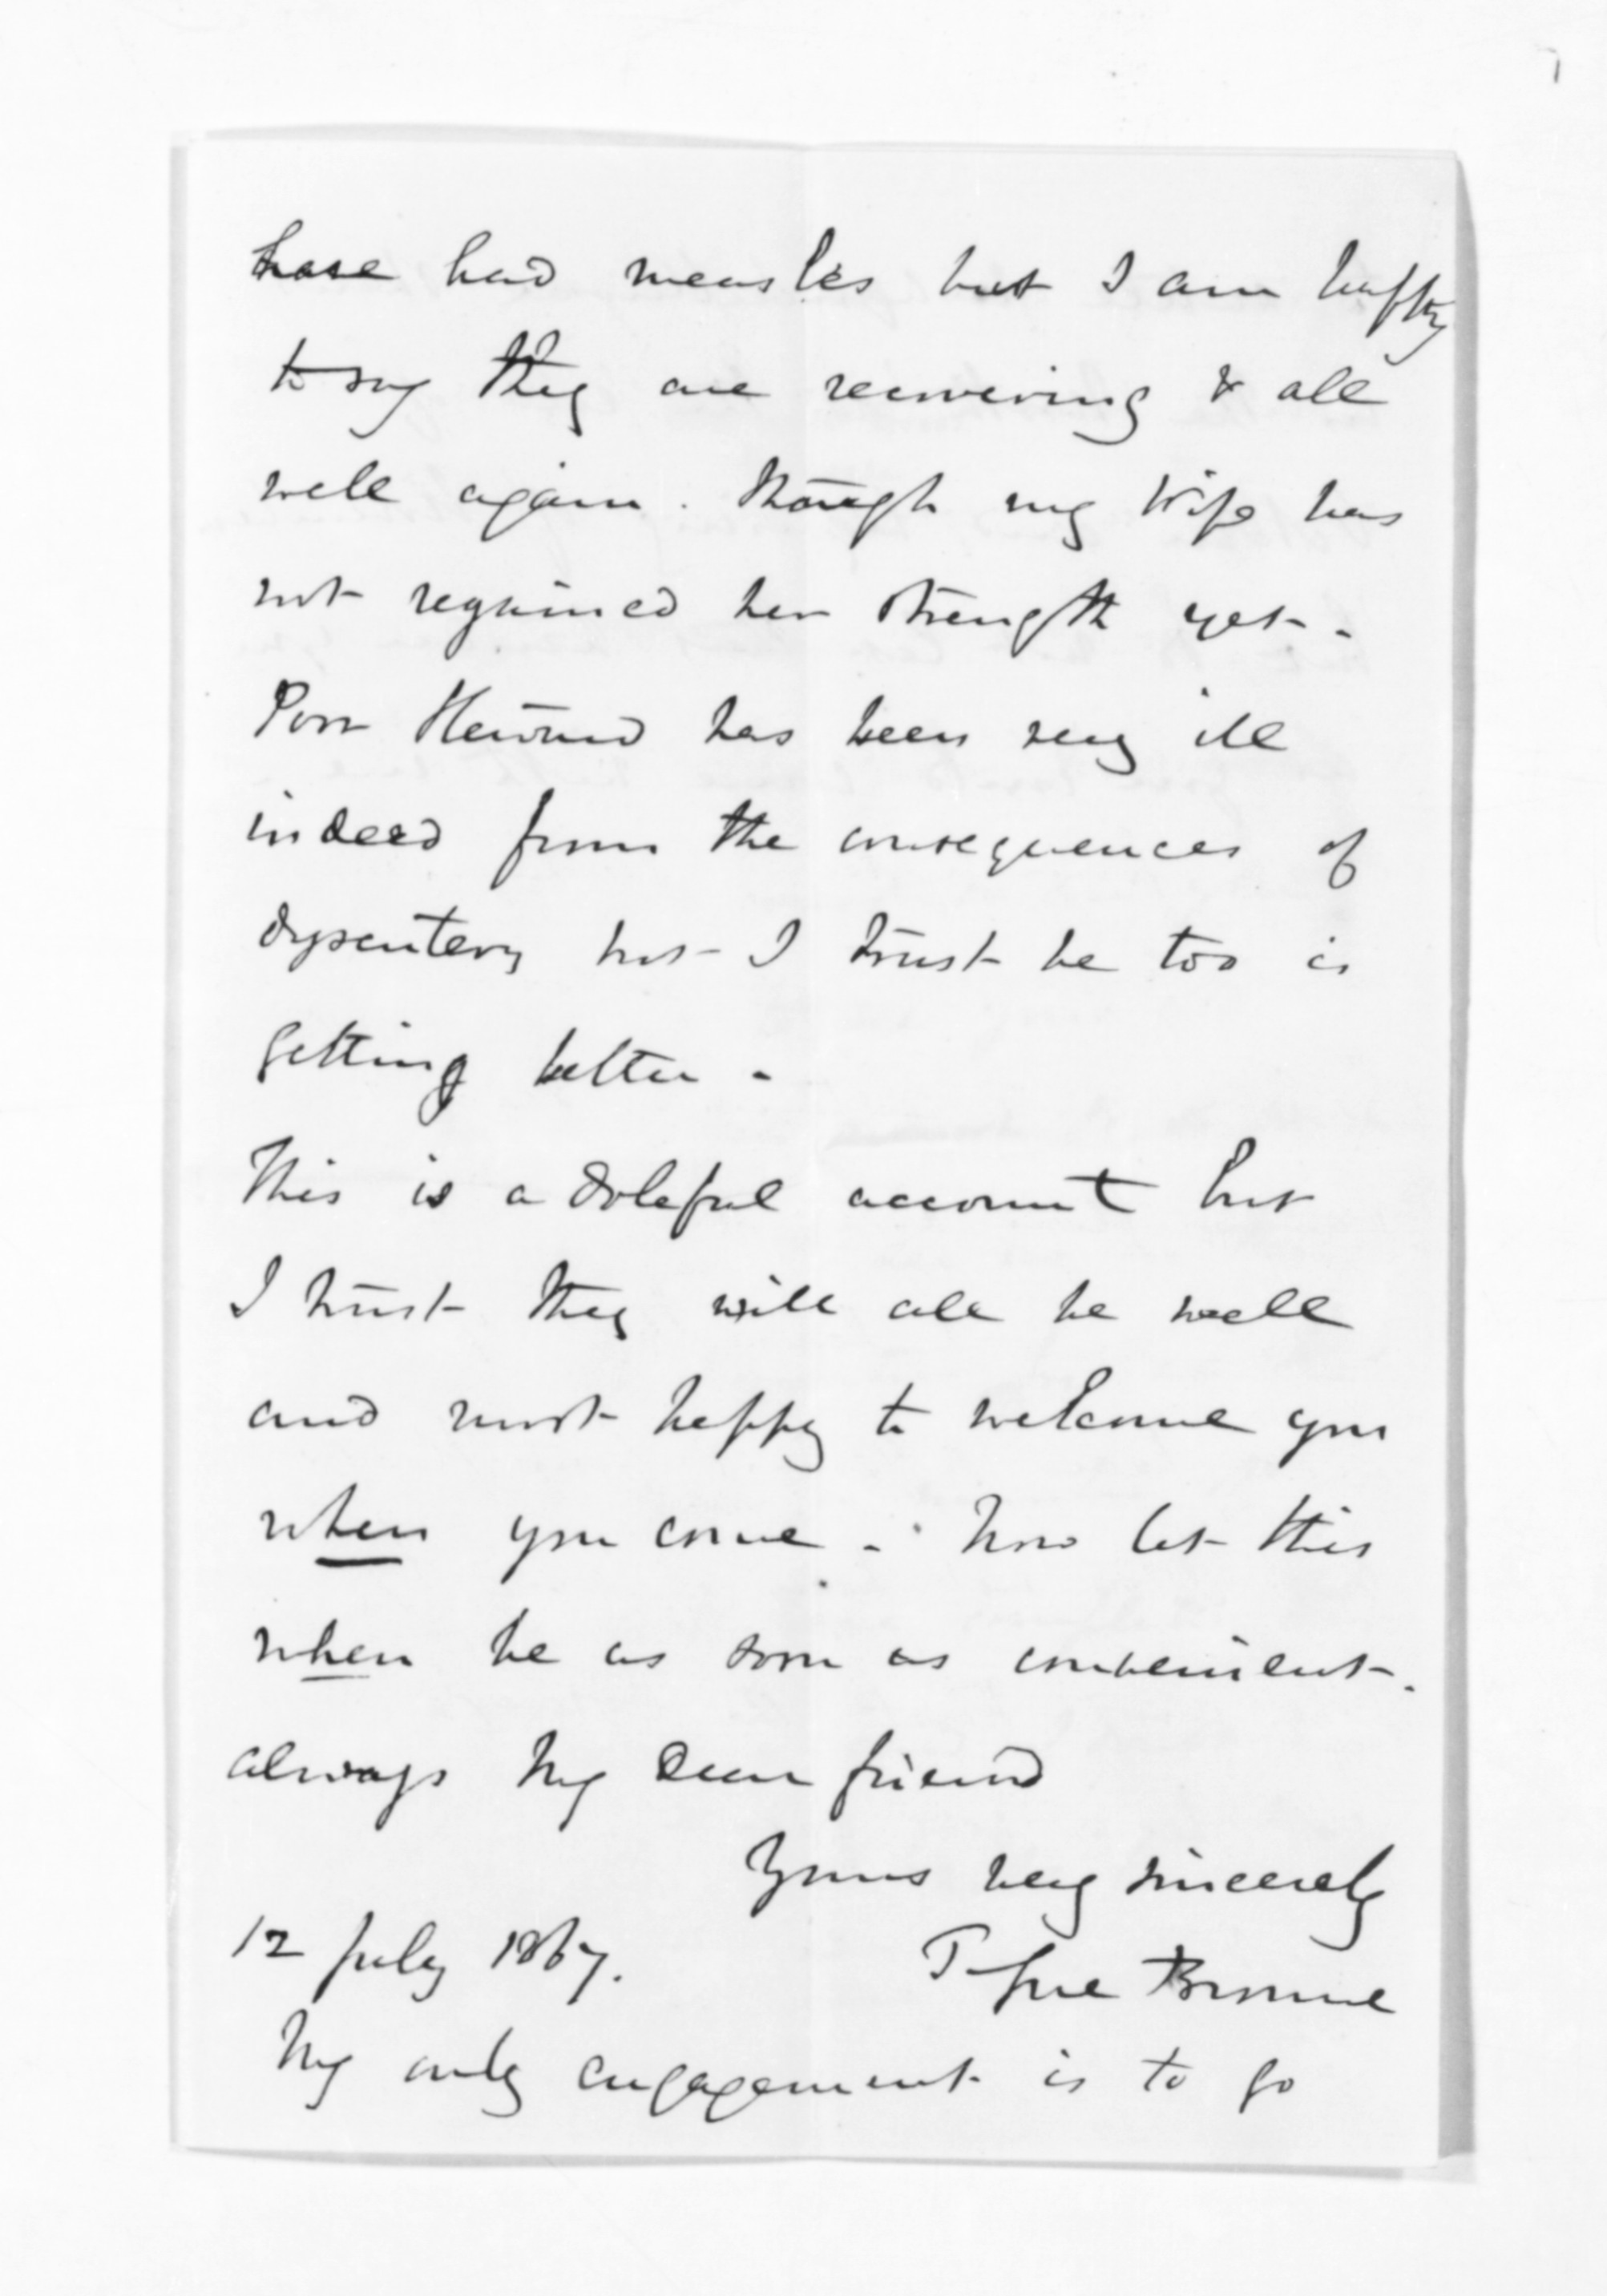 have had measles but I am happy
to say they are recovering & all
well again. Though my Wife has
not regained her strength yet.
Poor Harold has been very ill
indeed from the consequences of
dysentery but I trust he too is
getting better.
This is a doleful account but
I trust they will all be well
and most happy to welcome you
when you come. Now let this
when be as soon as convenient.
always My dear friend
Yours very sincerely
12 July 1867.
T. Gore Browne
My only engagement is to go